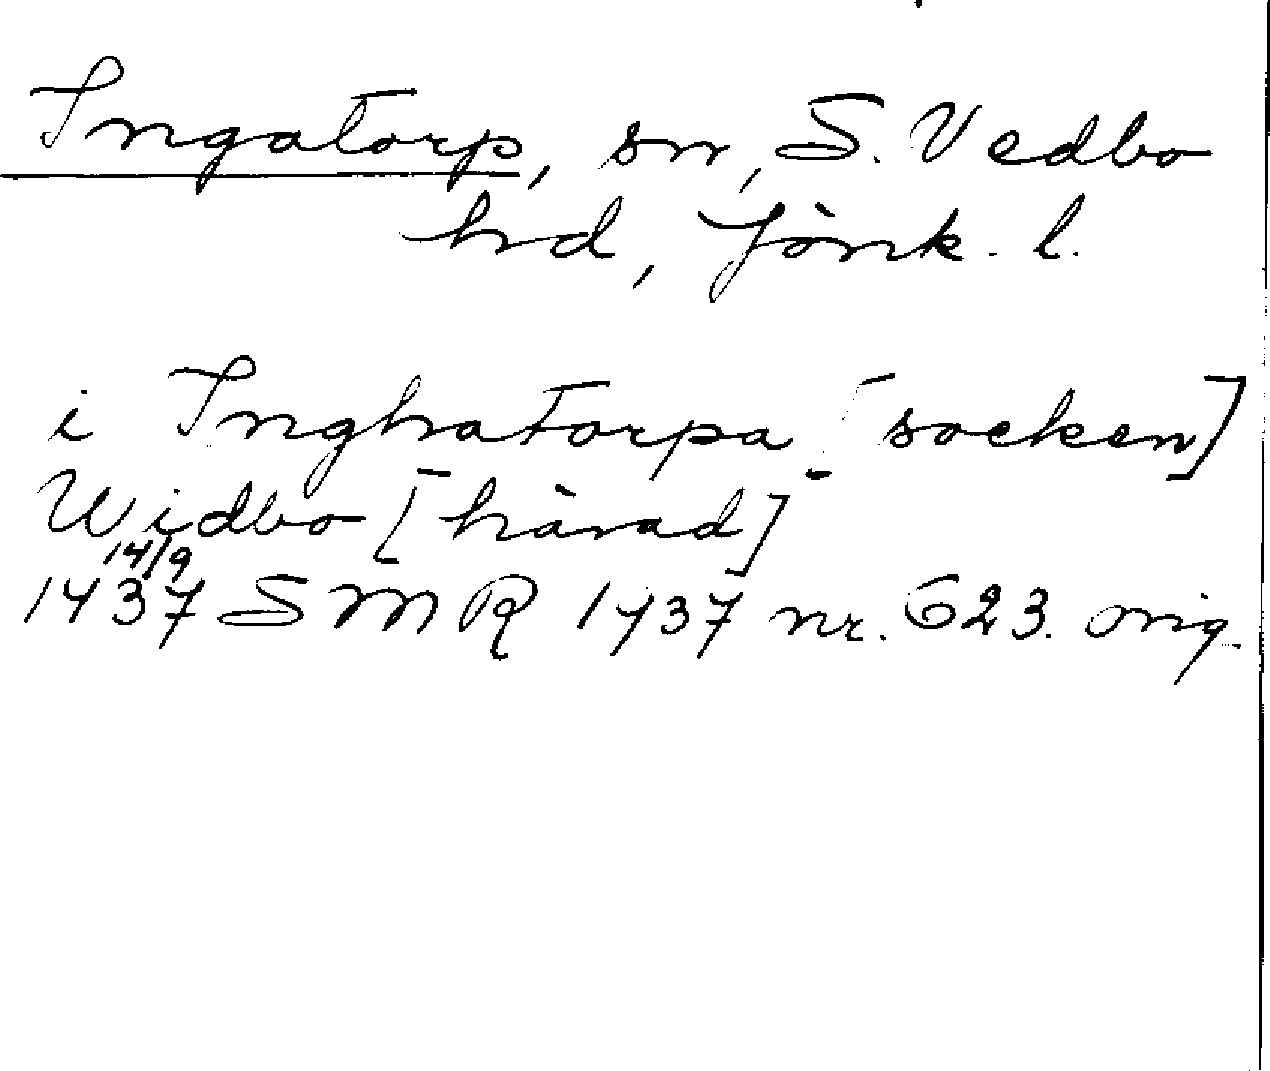 Ingatorp, sn, S. Vedbo
hd, Jönk. l.
i Inghatorpa [socken]
Widbo [härad]
14/9
1437 SMR 1437 nr. 623. orig.